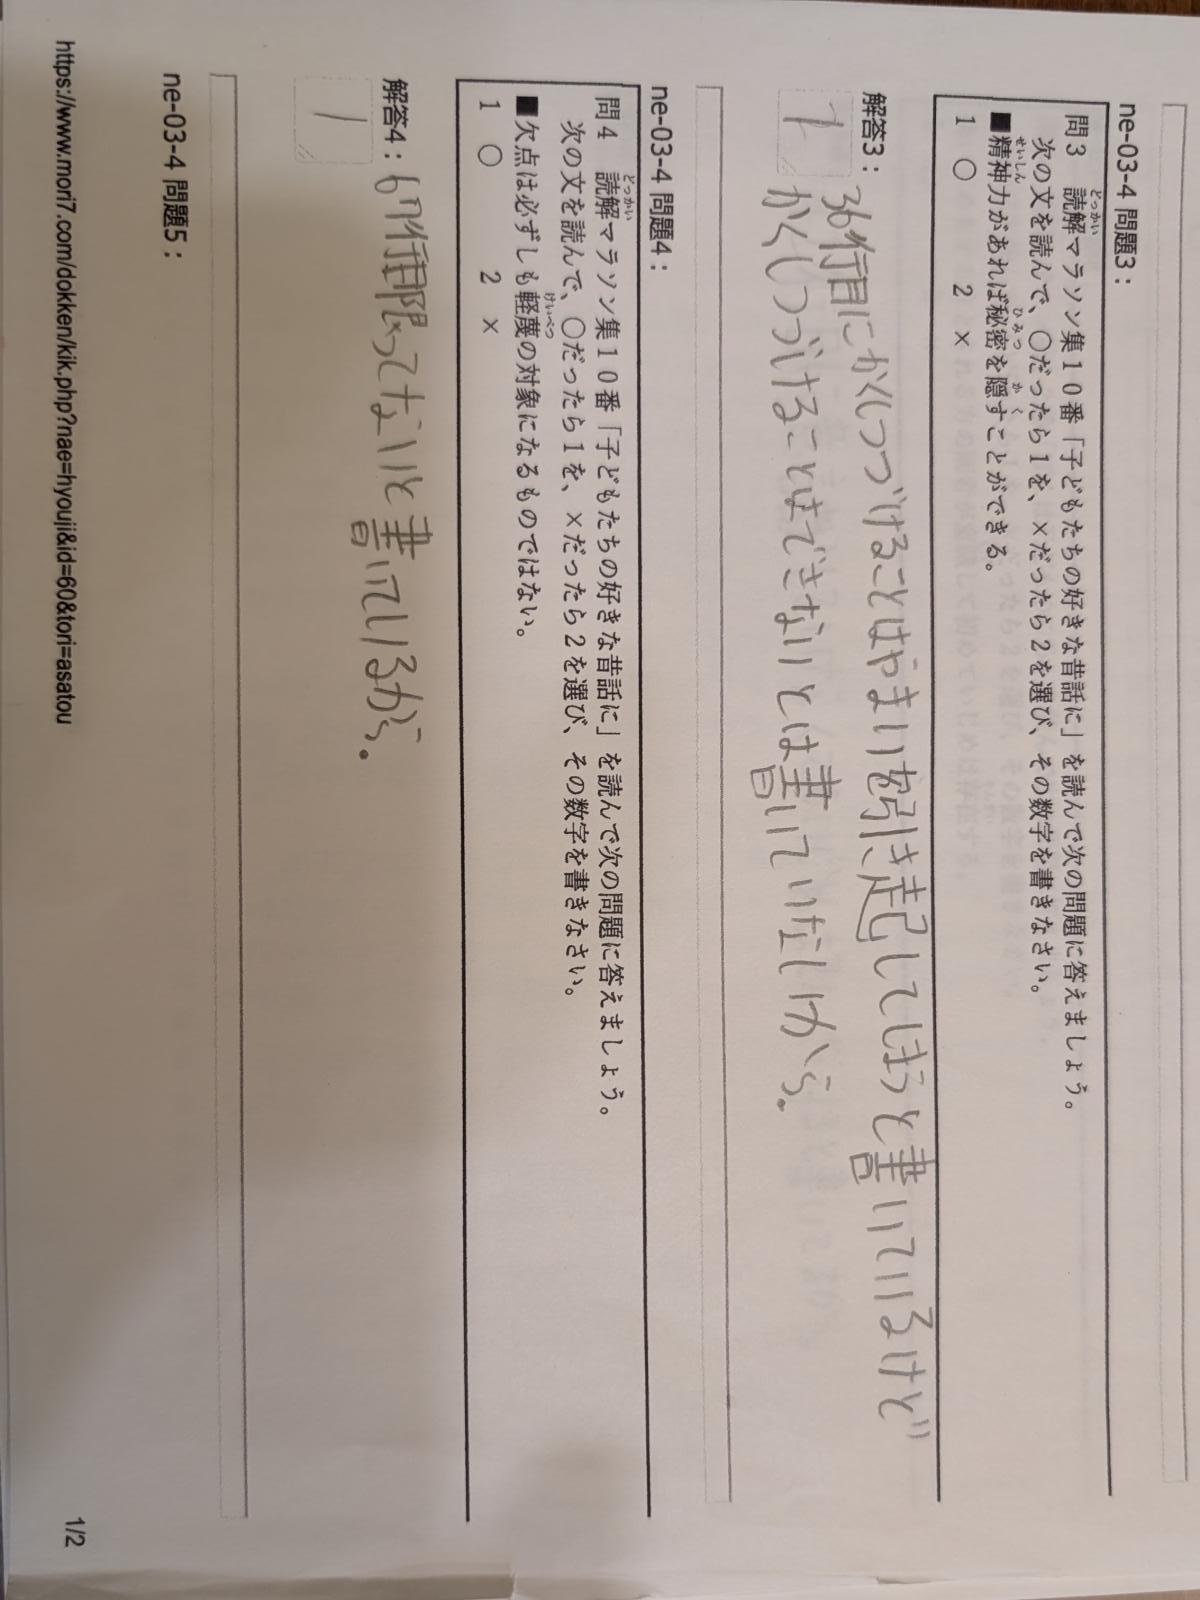 ne-03-4 問題3：
問3　読解マラソン集10番「子どもたちの好きな昔話に」を読んで次の問題に答えましょう。
どっかい
次の文を読んで、○だったら1を、×だったら2を選び、その数字を書きなさい。
■精神力があれば秘密を隠すことができる。
せいしん　ひみつ　かく
1　○　2　×
解答3：
1
36行目にかくしつづけることはやまいを引き起してしまうと書いているけど
かくしつづけることはできないとは書いていないから。
ne-03-4 問題4：
問4　読解マラソン集10番「子どもたちの好きな昔話に」を読んで次の問題に答えましょう。
どっかい
次の文を読んで、○だったら1を、×だったら2を選び、その数字を書きなさい。
■欠点は必ずしも軽蔑の対象になるものではない。
けいべつ
1　○　2　×
解答4：
1
67行目限ってないと書いているから。
ne-03-4 問題5：
https://www.mori7.com/dokken/kik.php?nae=hyouji&id=60&tori=asatou
1/2